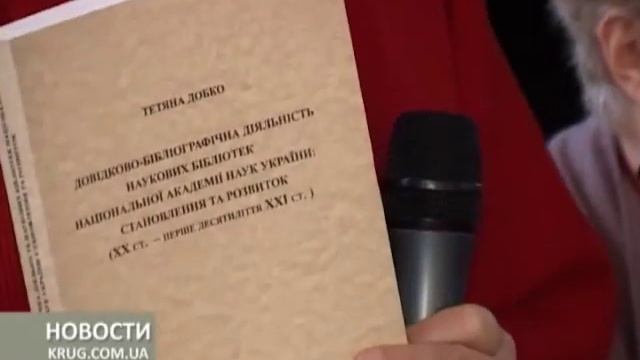 ТЕТЯНА ДОБКО
ДОВІДКОВО-БІБЛІОГРАФІЧНА ДІЯЛЬНІСТЬ
НАУКОВИХ БІБЛІОТЕК
НАЦІОНАЛЬНОЇ АКАДЕМІЇ НАУК УКРАЇНИ:
СТАНОВЛЕННЯ ТА РОЗВИТОК
(ХХ СТ. – ПЕРШЕ ДЕСЯТИЛІТТЯ ХХІ СТ. )
НОВОСТИ
KRUG.COM.UA